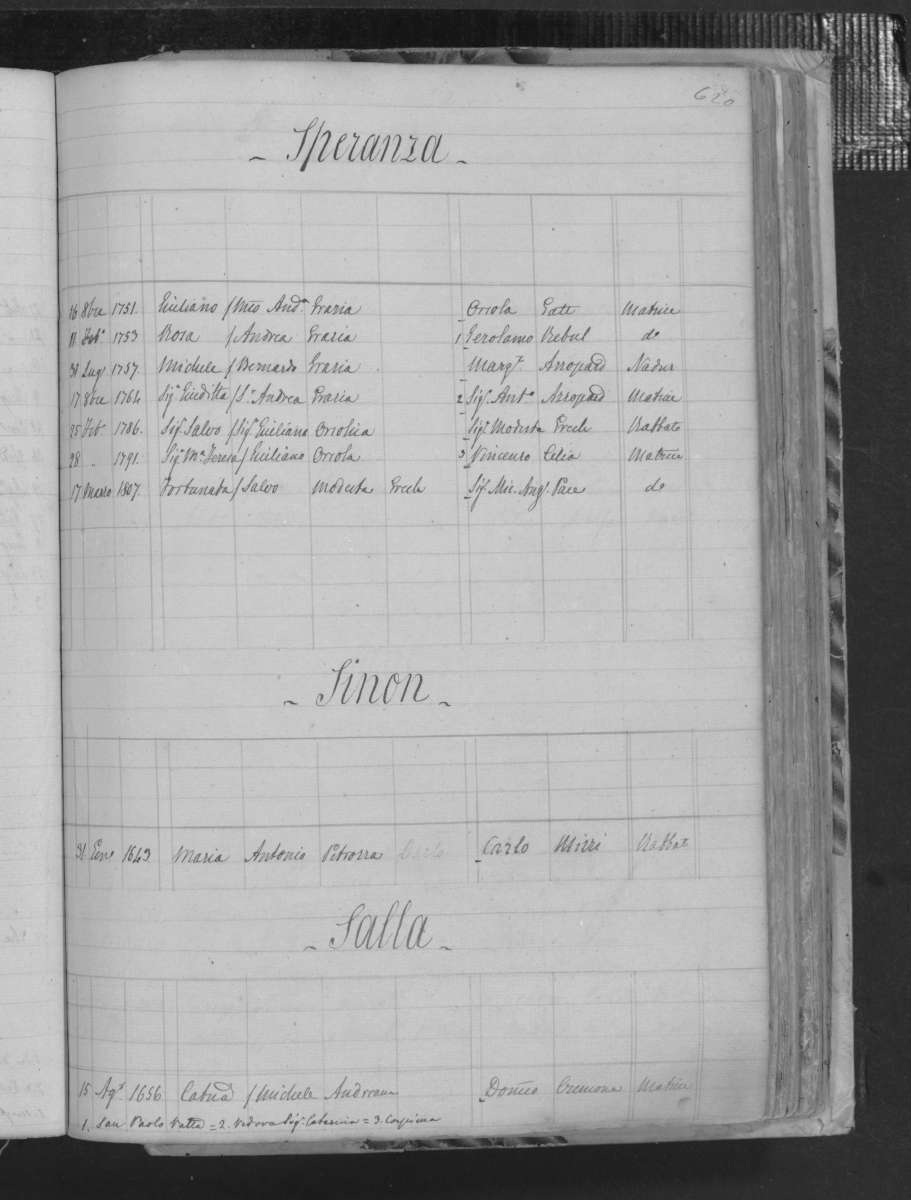 620
- Speranza -
16 8bre 1751. Giuliano / Mro Anda Grazia Oriola Gatt Matrice
11 Feb. 1753 Rosa / Andrea Grazia 1 Gerolamo Rebul do
31 Lug. 1757. Michele / Bernardo Grazia Margt. Anopard Nadur
17 8bre 1764 Sigr Giuditta / Sr. Andrea Grazia 2 Sigr. Anto Anopard Matrice
25 Feb 1786. Sigr Salvo / Sigr Giuliano Sigra Modesta Ercole Rabbato
28 " 1791. Sigra Ma Teresa / Giuliano Oriola 3 Vincenzo Celia Matrice
17 Marzo 1807. Fortunata / Salvo Modesta Ercole Sigr Mic. Angl. Pace do
- Sinon -
31 Gen. 1643 Maria Antonio Petrozza Carlo Carlo Mizzi Rabbat
- Salla -
15 Ago. 1656 Catna / Michele Andreana Domco Cremona Matrice
1. San Paolo = 2. Vedova Sigra Caterina = 3.